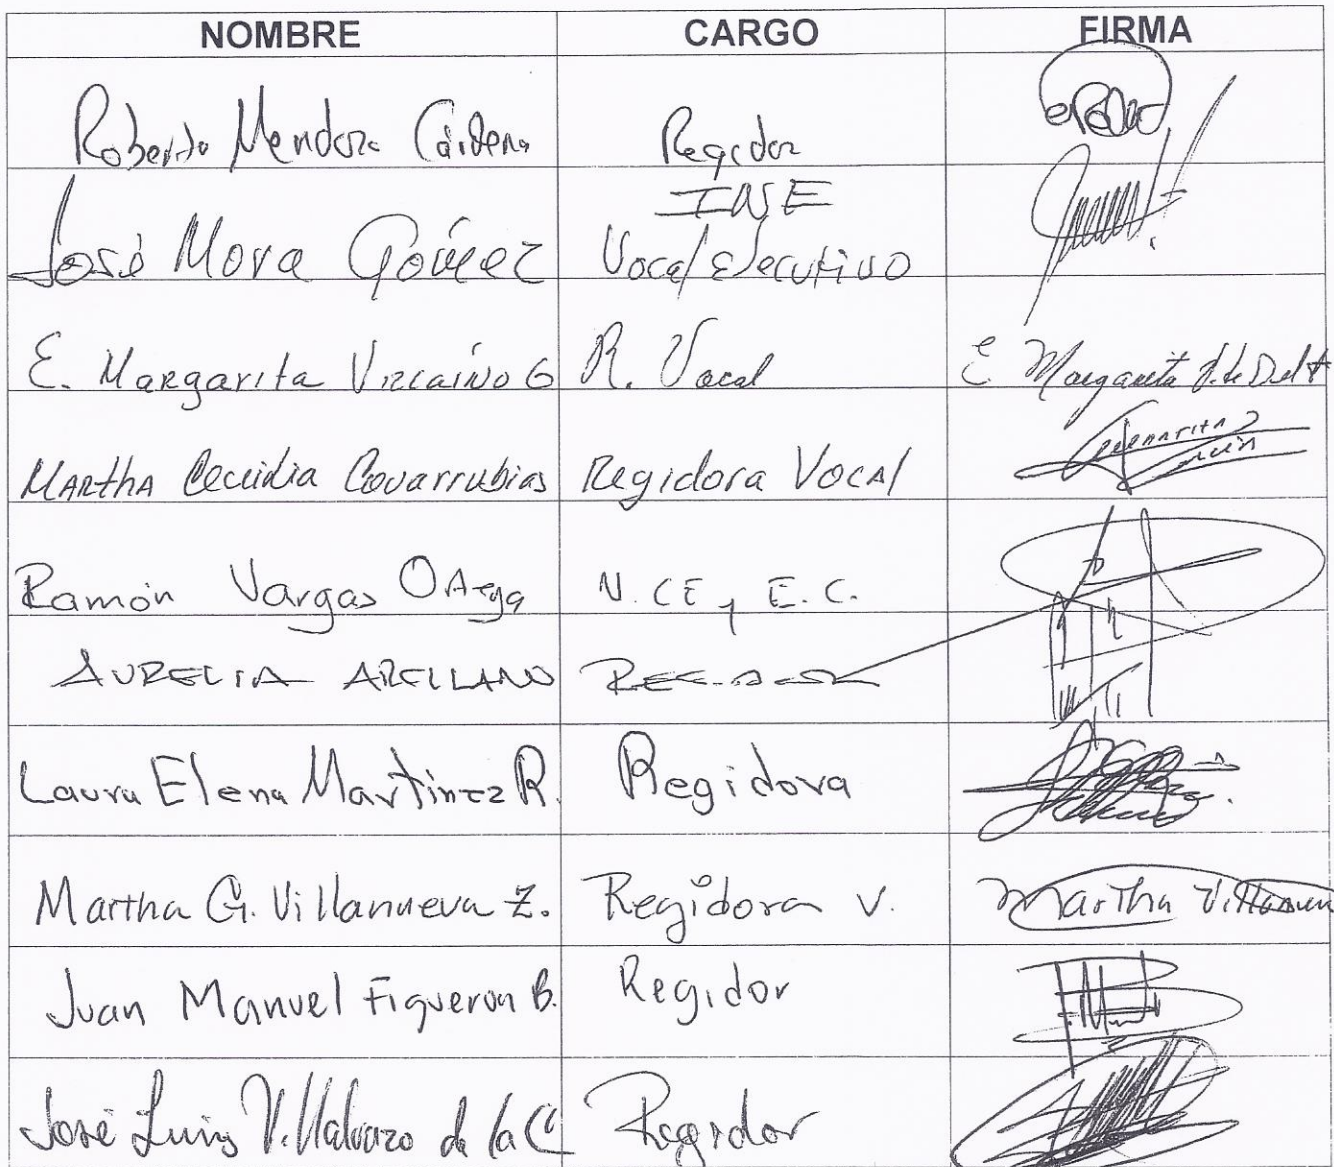 NOMBRE CARGO FIRMA
Roberto Mendoza Cárdena Regidor
INE
José Mora Gómez Vocal Ejecutivo
E. Margarita Vizcaíno G R. Vocal E Margarita
Martha Cecilia Covarrubias Regidora Vocal
Ramón Vargas Ortega N. CE y E. C.
AURELIA ARELLANO
Laura Elena Martínez R. Regidora
Martha G. Villanueva Z. Regidora V. Martha Villanuev
Juan Manuel Figueroa B. Regidor
José Luis Villalvazo de la C Regidor